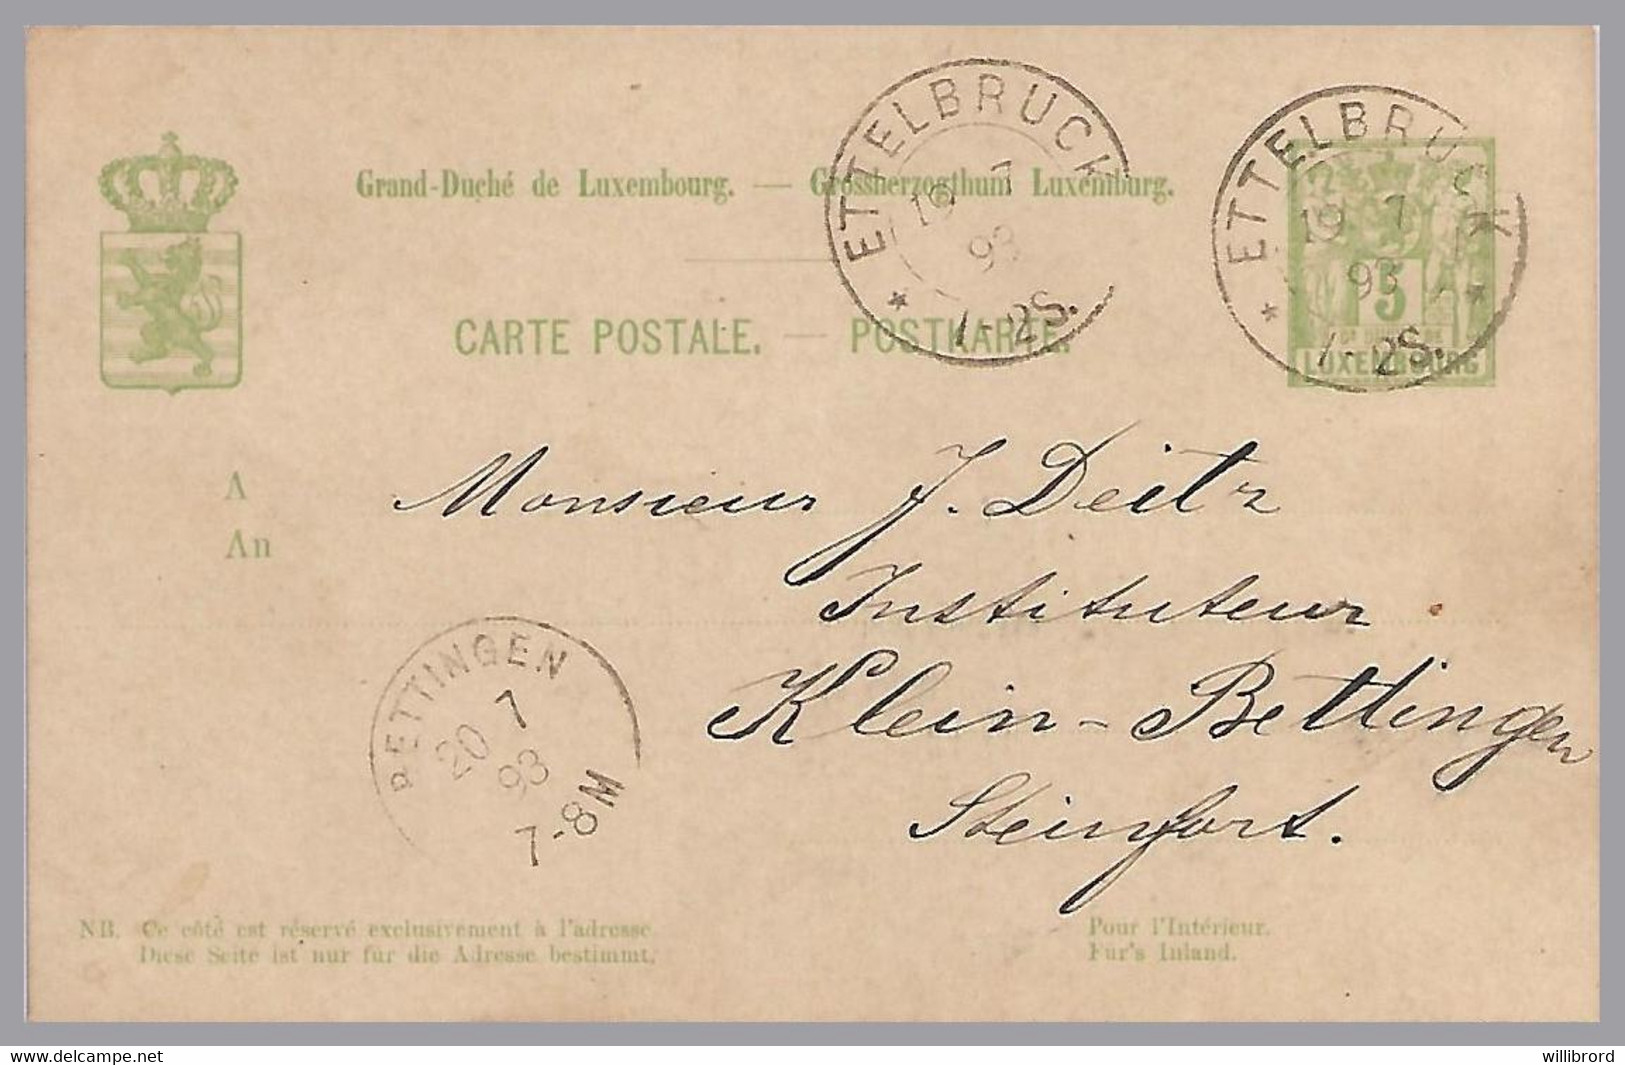 Grand-Duché de Luxembourg. — Grossherzogthum Luxemburg.
CARTE POSTALE. — POSTKARTE.
ETTELBRUCK
19 7
93
1-2S.
ETTELBRUCK
19 7
93
1-2S.
5
LUXEMBOURG
A
An
Monsieur J. Deitz
Instituteur
Klein-Bettingen
Steinfort.
BETTINGEN
20 7
93
7-8M
NB. Ce côté est réservé exclusivement à l'adresse.
Diese Seite ist nur für die Adresse bestimmt.
Pour l'Intérieur.
Fur's Inland.
www.delcampe.net
willibrord